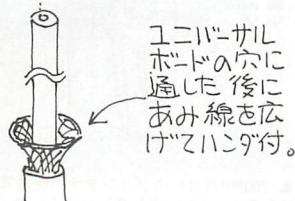 ユニバーサル
ボードの穴に
通した後に
あみ線を広
げてハンダ付。